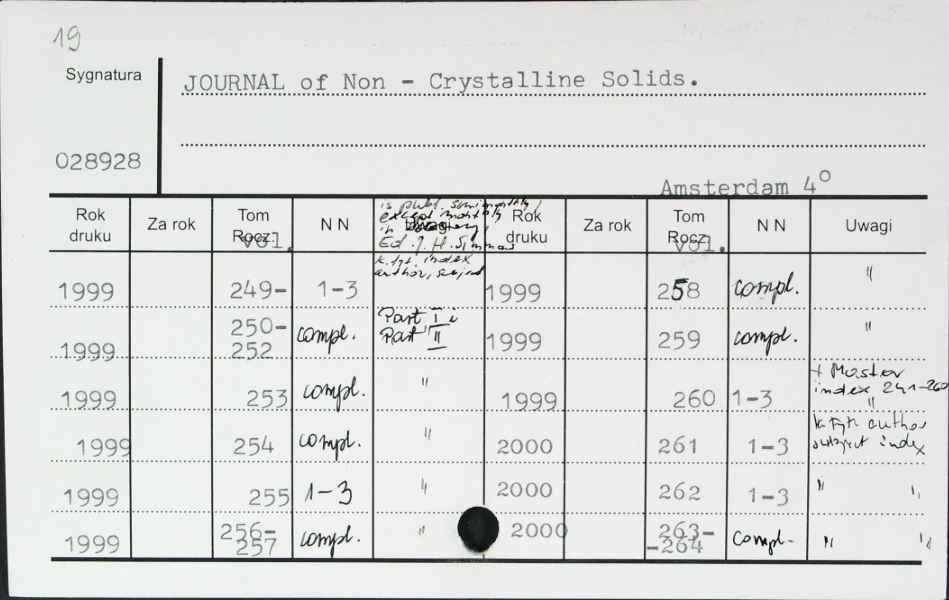 19
Sygnatura
JOURNAL of Non - Crystalline Solids.
028928
Amsterdam 4°
Rok druku Za rok Tom Rocz. vol. N N Uwagi Rok druku Za rok Tom Rocz. vol. N N Uwagi
is publ. semimonthly,
except monthly
in
Ed. J. H. Simmons
k. tyt. index
author,
1999 249- 1-3 1999 258 compl. "
1999 250-252 compl. Part I i Part II 1999 259 compl. "
1999 253 compl. " 1999 260 1-3 + Master index 241-260 "
1999 254 compl. " 2000 261 1-3 k. tyt. author subject index
1999 255 1-3 " 2000 262 1-3 " "
1999 256-257 compl. " 2000 263--264 compl. " "